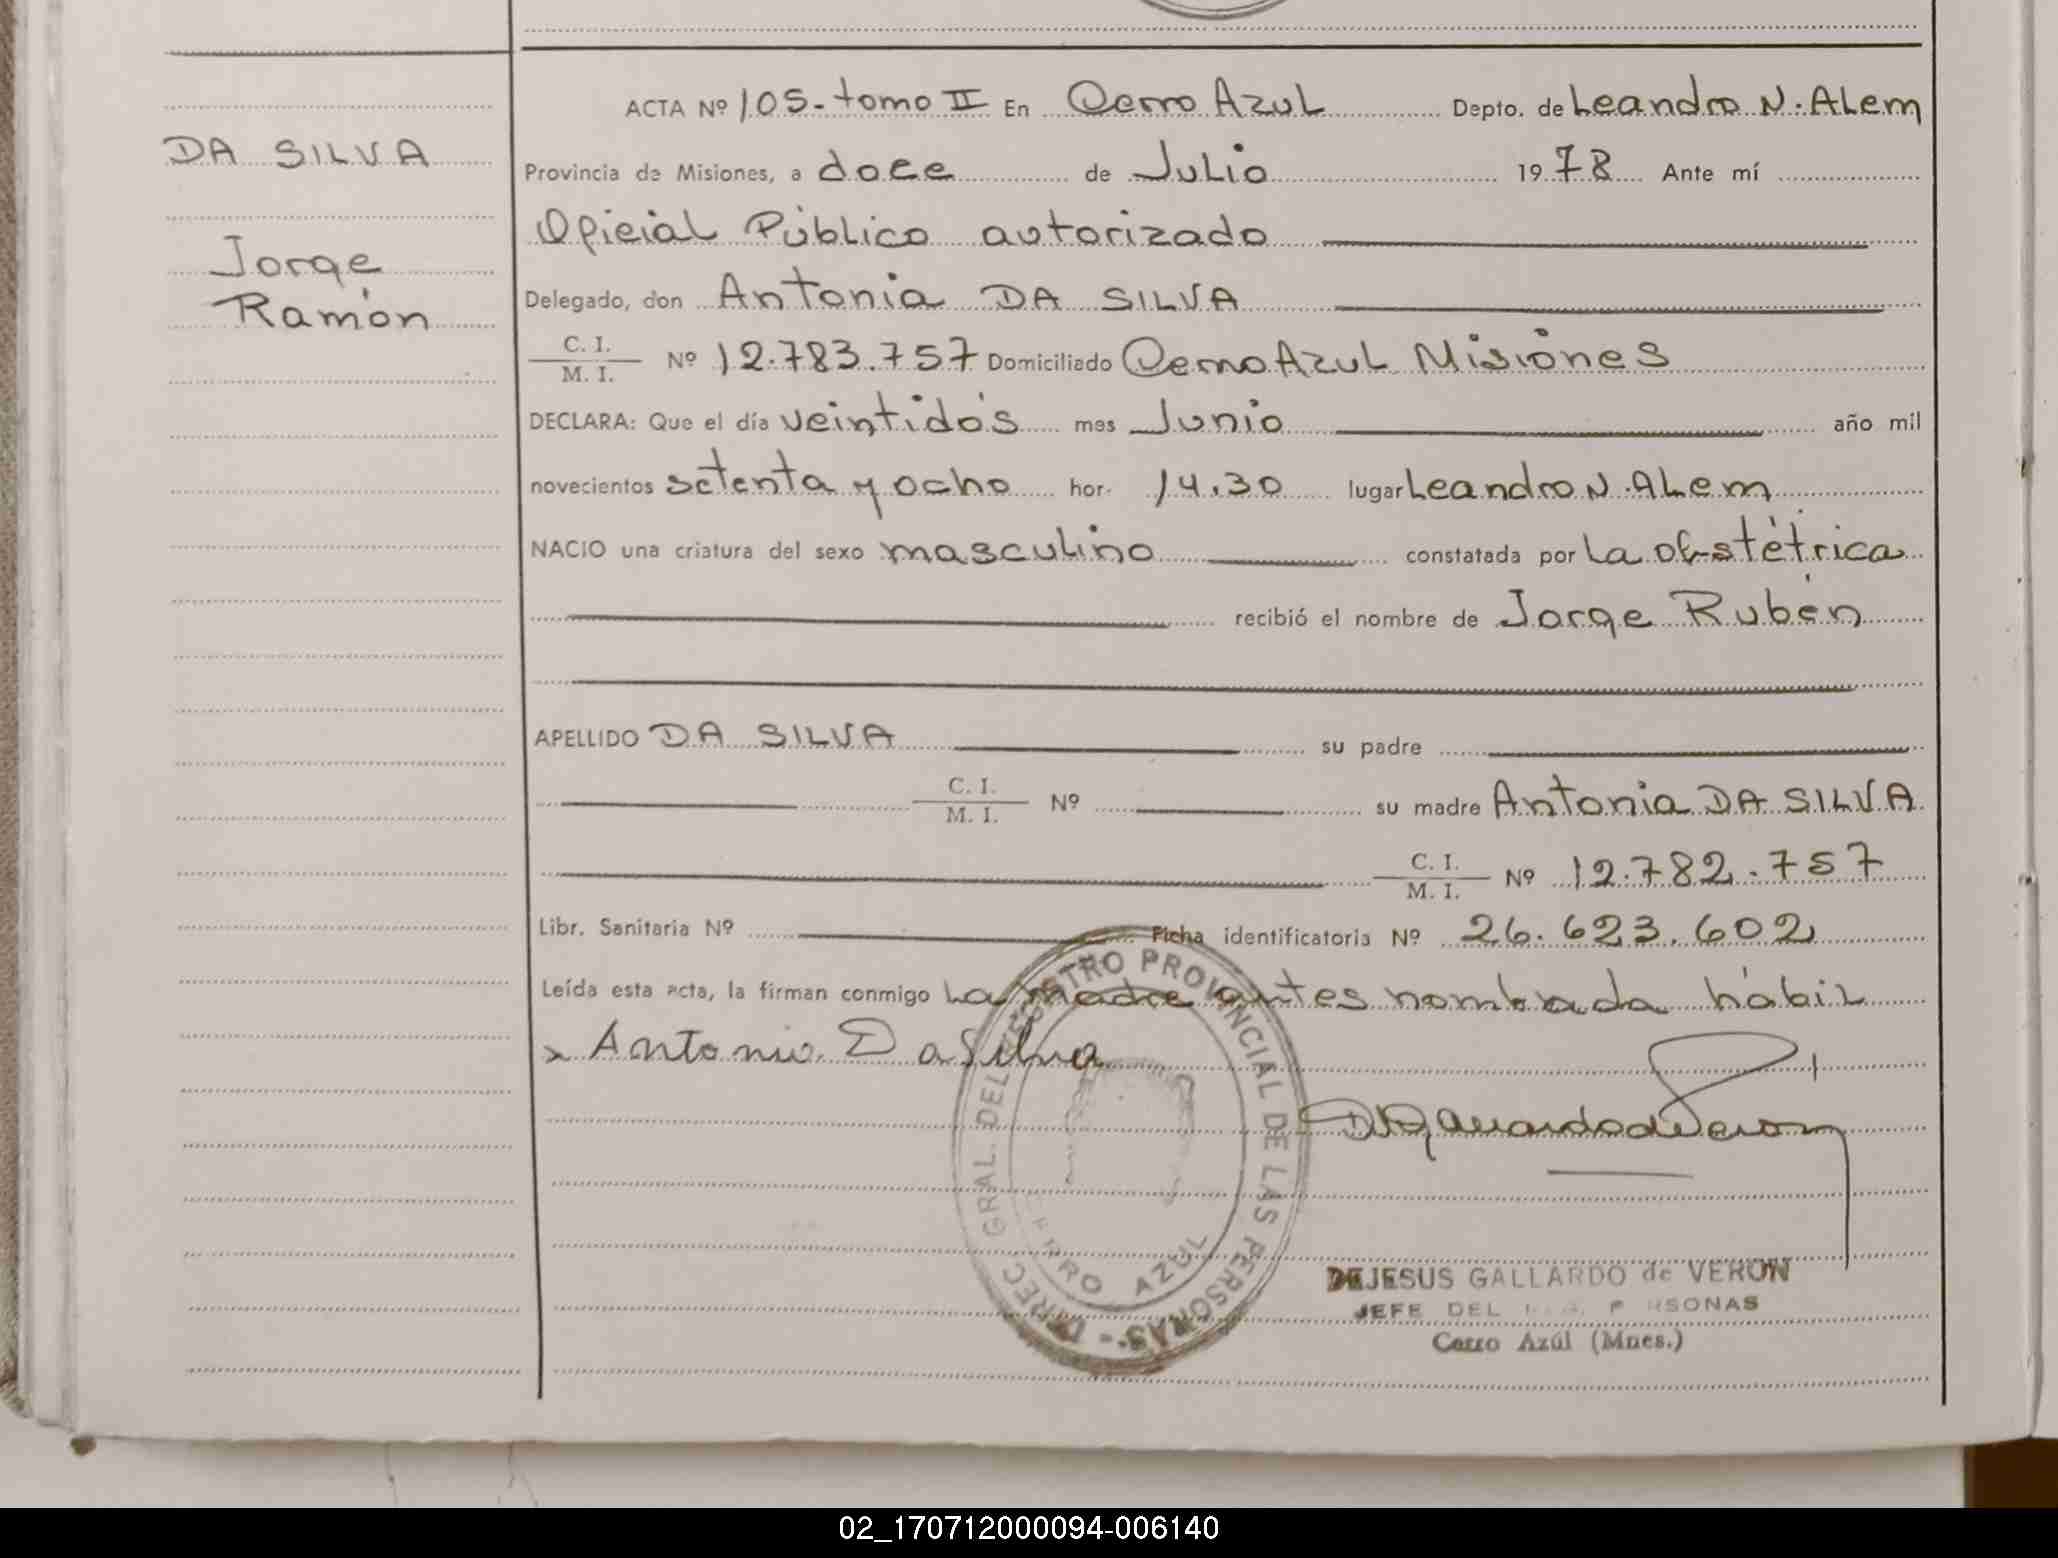 DA SILVA
Jorge
Ramón
ACTA Nº 105- tomo II En Cerro Azul Depto. de Leandro N. ALem
Provincia de Misiones, a doce de Julio 1978 Ante mí
Oficial Público autorizado
Delegado, don Antonia DA SILVA
C. I.
M. I. Nº 12.783.757 Domiciliado Cerro Azul Misiones
DECLARA: Que el día veintidós mes Junio año mil
novecientos setenta y ocho hor. 14,30 lugar Leandro N. ALem
NACIO una criatura del sexo masculino constatada por La obstétrica
recibió el nombre de Jorge Rubén
APELLIDO DA SILVA su padre
C. I.
M. I. Nº su madre Antonia DA SILVA
C. I.
M. I. Nº 12.782.757
Libr. Sanitaria Nº Ficha identificatoria Nº 26.623.602
Leída esta acta, la firman conmigo La madre antes nombrada hábil
x Antonia Da Silva
DIREC GRAL. DEL REGISTRO PROVINCIAL DE LAS PERSONAS -
CERRO AZUL
DJGallardodeVeron
DEJESUS GALLARDO de VERON
JEFE DEL REG. PERSONAS
Cerro Azúl (Mnes.)
02_170712000094-006140